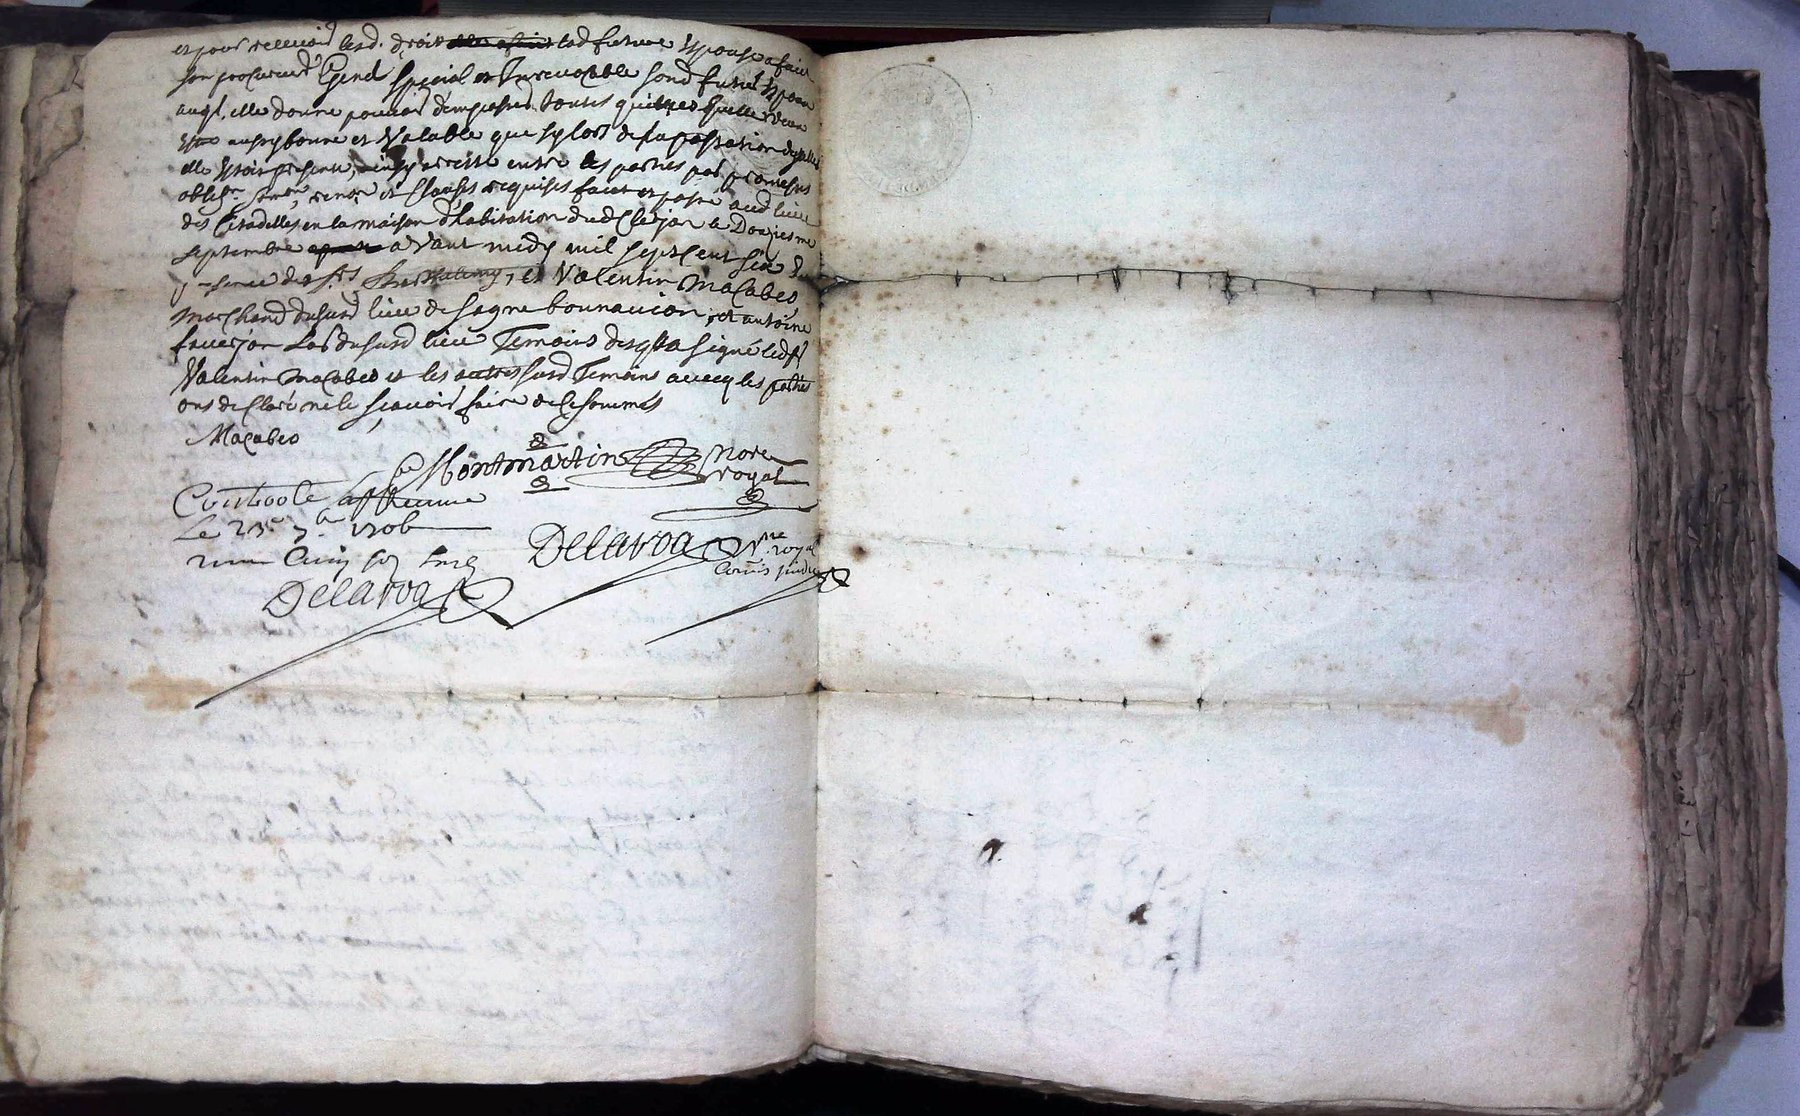 et pour recevoir lesd. droits lad future Espouse a fait
son procureur gnal special et Irrevocable sond futur Espoux
auql. elle donne pouvoir d'en passer toutes quittces
Estre aussy bonne et Valable que sy lors de la passation
elle Estoit presente, ainsy arresté entre les parties par promesses
oblig.on, renon et Clauses requises faict et passé aud lieu
des Citadelles en la maison d'habitation dud Claejon le Douziesme
septembre avant midy mil sept Cent six En
pnce de st Barthelemy, et Valentin Macabeo
Marchand dususd lieu de sagne bonnavion, et antoine
faverjon Lab dususd lieu Temoins desqls a signé led sr
Valentin Macabeo et les autres susd Temoins avecq les parties
ons declaré ne le sçavoir faire de ce sommés
Macabeo
Montmartin Nore
royal
Controolé
Le 23e 7b 1706
Delaroa Nre royal
Comis
Delaroa